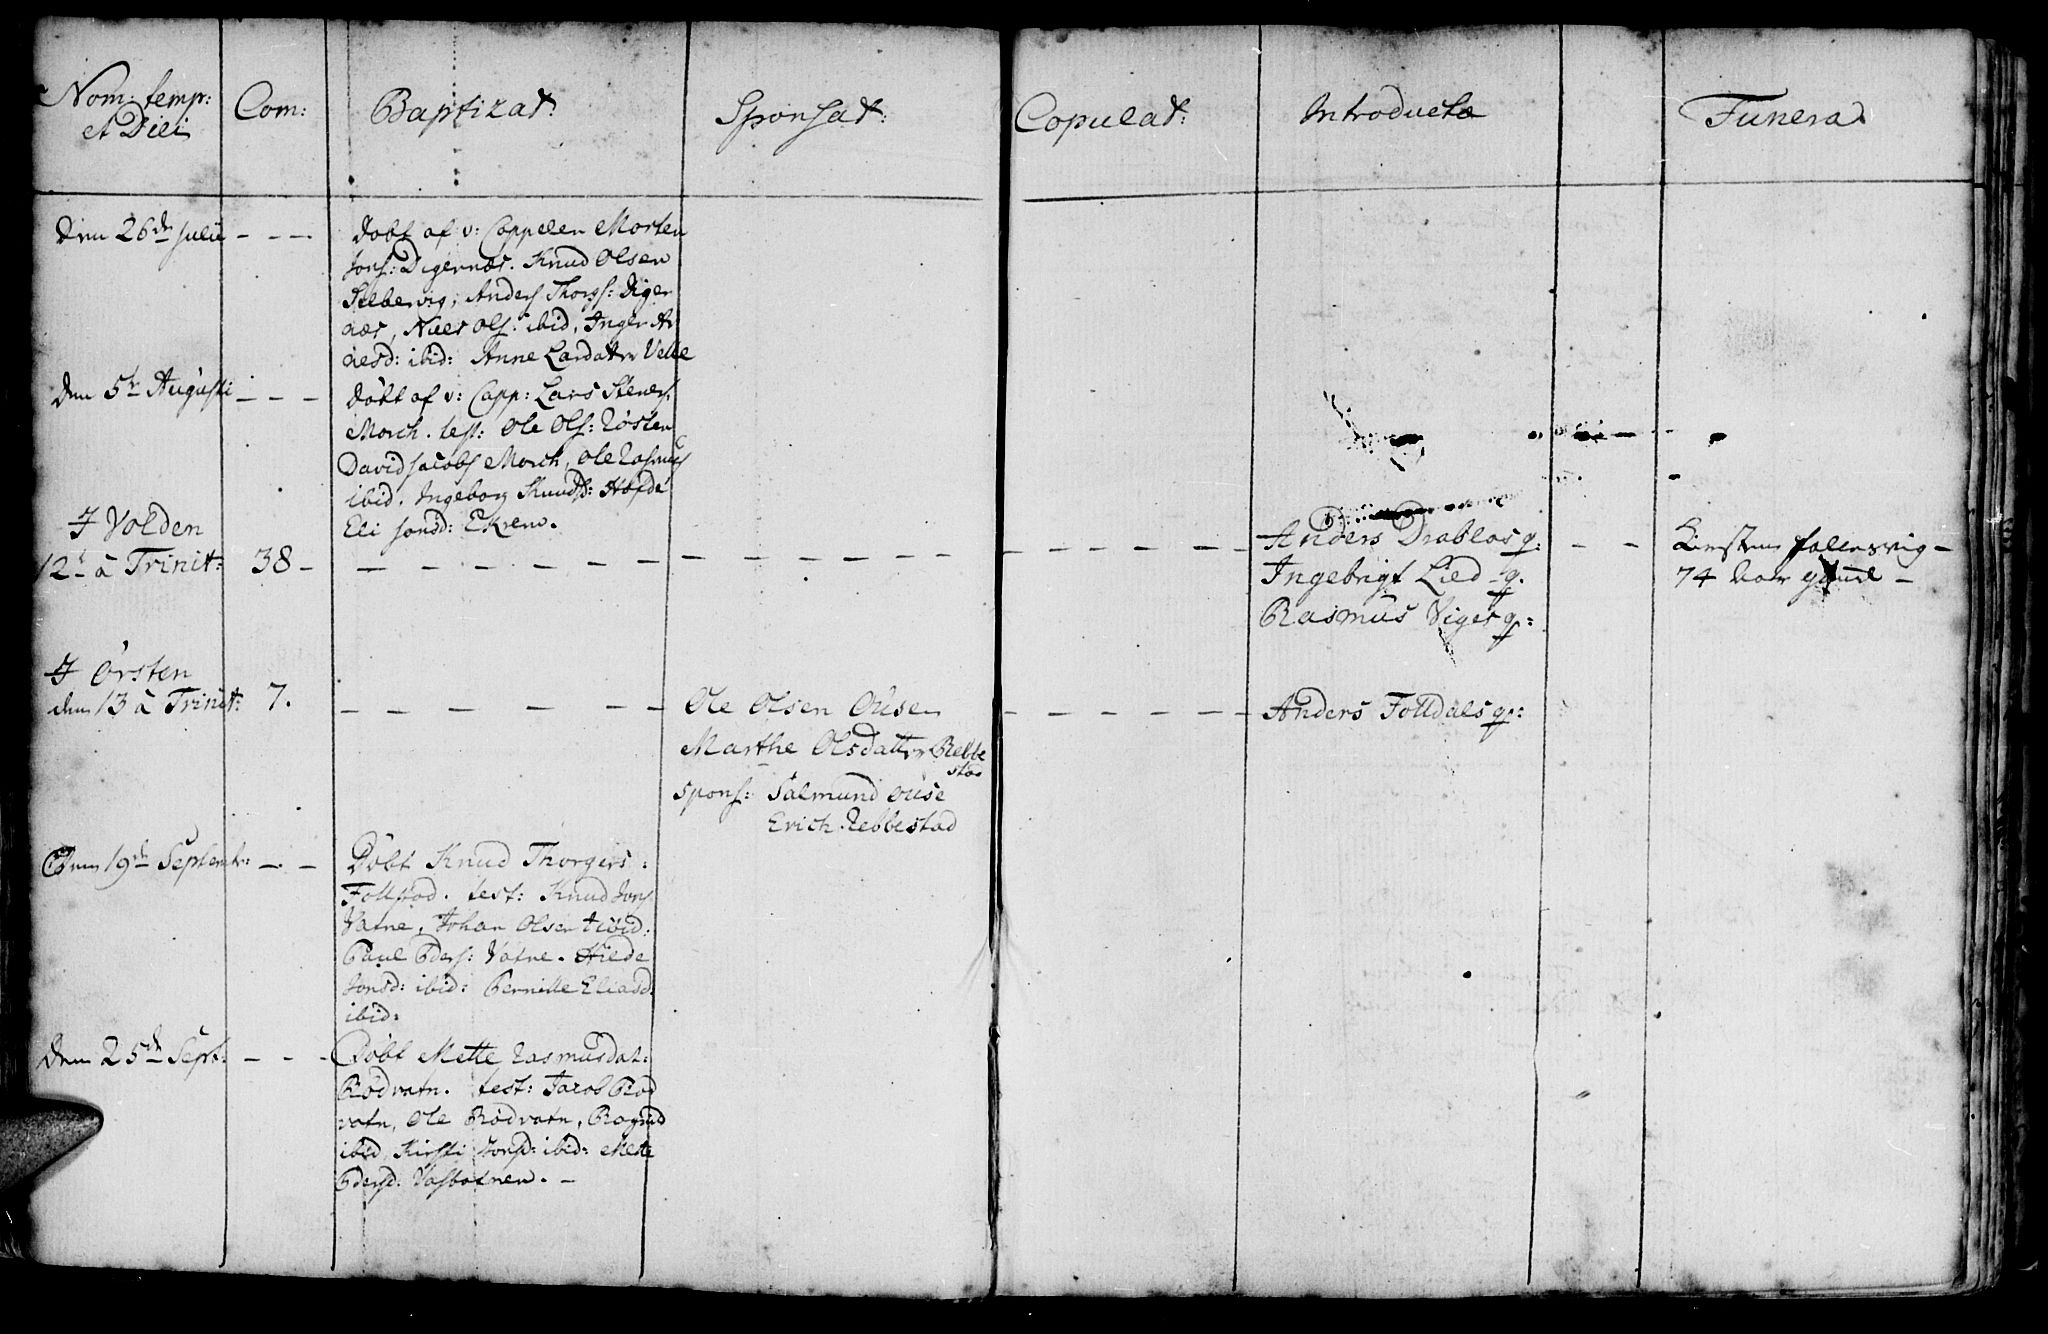 Nom: temp:
et Diei
Com:
Baptizat:
Sponsat:
Copulat:
Introductæ
Funera
Den 26de Julii - - -
Døbt af v: Cappelen Morten
Jons: Digernæs. Knud Olsen
Anders Thorss: Diger
næs, Niels Ols: ibid, Inger Ar
nesd: ibid: Anne Larsdatter Velle
den 5te Augusti - - -
døbt af v: Capp: Lars Steners.
Morch. test: Ole Ols: Røsten
David Jacobs Morch, Ole Rasmus
ibid. Ingeborg Knuds: Hofde
Eli Jonsd: Ekrem.
I Volden
12te à Trinit: 38 -
Anders Drabløs q:
Ingebrigt Lied q.
Rasmus Viger q:
Kirsten
74 aar gaml -
I Ørsten
den 13 à Trinit: 7.
Ole Olsen Ouse
Marthe Olsdatter Rebbe
stad
spons: Salmund Ouse
Erich Rebbestad
Anders Folldals q:
Den 19de Septembr: - -
Døbt Knud Thorgers:
Follstad. test: Knud Jons
Vatne, Johan Olsen ibid:
Paul Peders: Vatne. Hilde
Jonsd: ibid: Pernille Eliasd.
ibid:
den 25de Sept: - - -
Døbt Mette Rasmusdat:
Rødvatn. test: Jacob Rød
vatn, Ole Rødvatn, Ragnild
ibid, Kirsti Jonsd: ibid: Mette
Pedersd: Vasbotnen. -